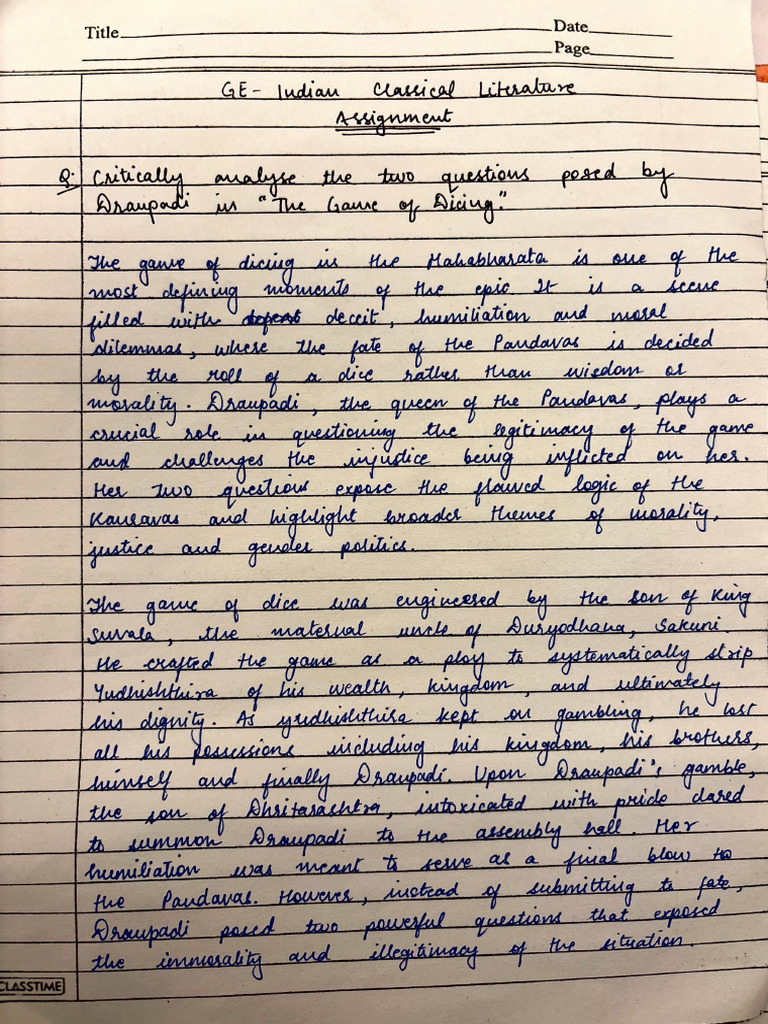 Title
Date
Page
GE- Indian Classical Literature
Assignment
Q. Critically analyse the two questions posed by
Draupadi in "The Game of Dicing."
The game of dicing in the Mahabharata is one of the
most defining moments of the epic It is a scene
filled with deceit, humiliation and moral
dilemmas, where the fate of the Pandavas is decided
by the roll of a dice rather than wisdom or
morality. Draupadi, the queen of the Pandavas, plays a
crucial role in questioning the legitimacy of the game
and challenges the injustice being inflicted on her.
Her two questions expose the flawed logic of the
Kauravas and highlight broader themes of morality,
justice and gender politics.
The game of dice was engineered by the son of King
Suvala, the maternal uncle of Duryodhana, Sakuni.
He crafted the game as a ploy to systematically strip
Yudhishthira of his wealth, kingdom, and ultimately
his dignity. As yudhishthira kept on gambling, he lost
all his possessions including his kingdom, his brothers,
himself and finally Draupadi. Upon Draupadi's gamble,
the son of Dhritarashtra, intoxicated with pride dared
to summon Draupadi to the assembly hall. Her
humiliation was meant to serve as a final blow to
the Pandavas. However, instead of submitting to fate,
Draupadi posed two powerful questions that exposed
the immorality and illegitimacy of the situation.
CLASSTIME